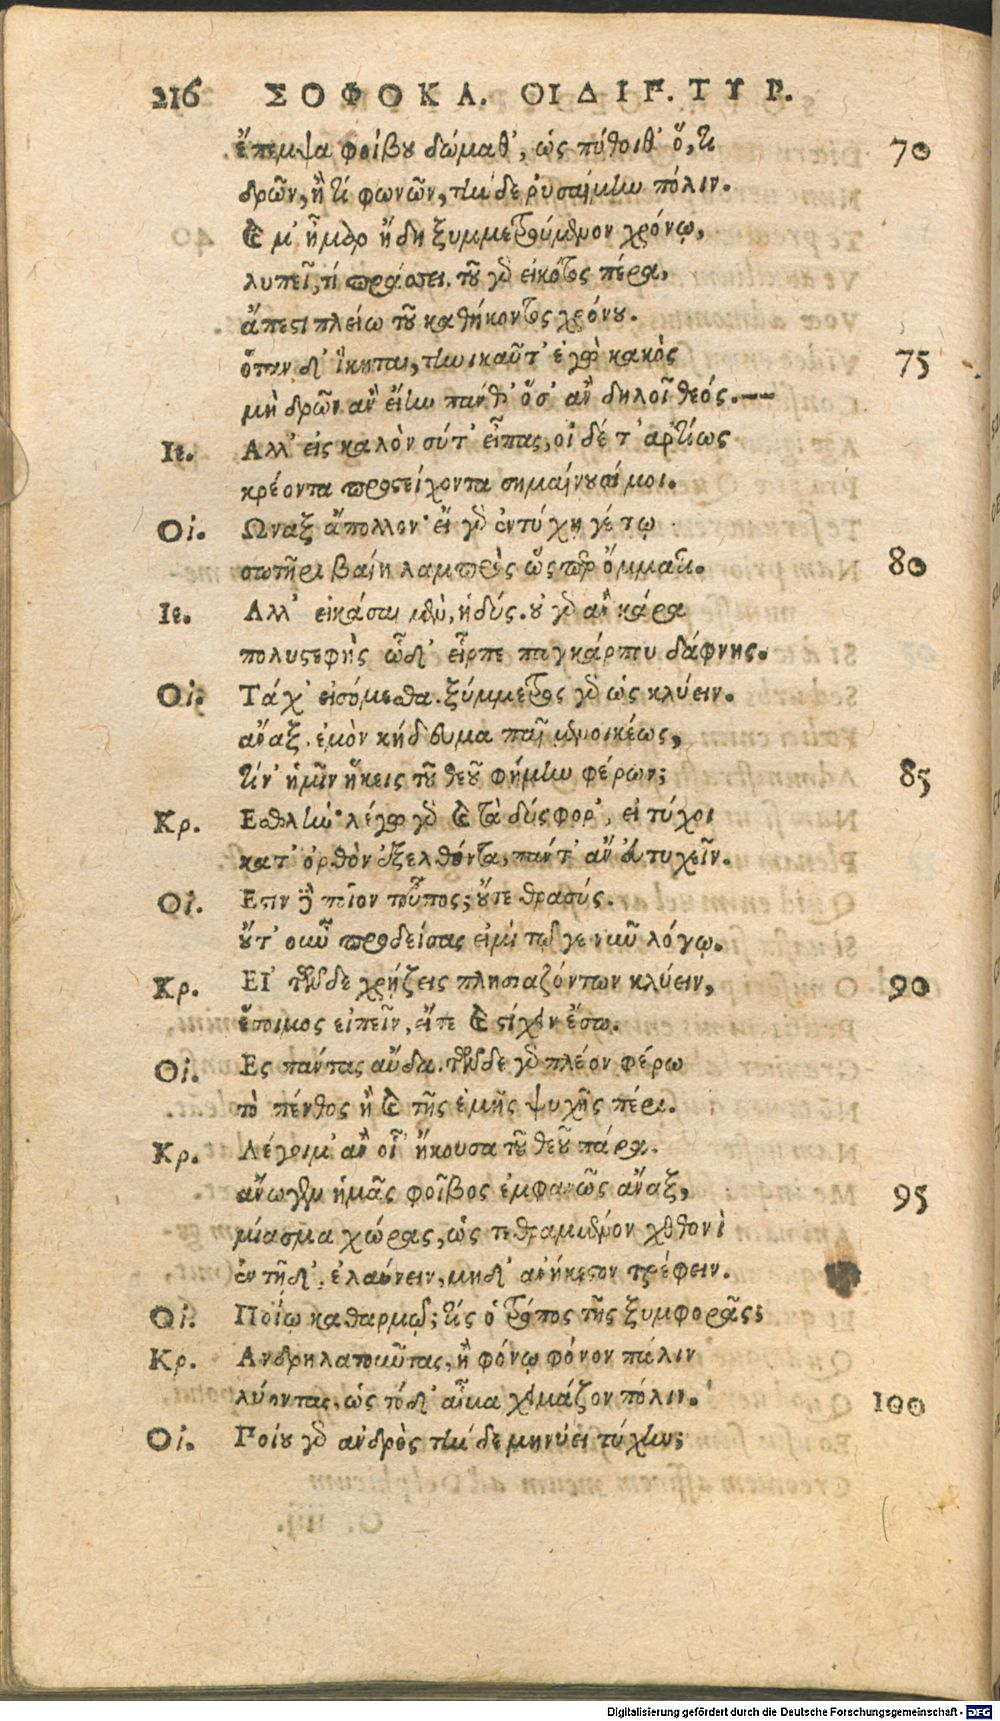 216 ΣΟΦΟΚΛ. ΟΙΔΙΠ. ΤΥΡ.
ἔπεμψα φοίβου δώμαθ', ὡς πύθοιθ' ὅ, τι 70
δρῶν, ἢ τί φωνῶν, τήνδε ῥυσαίμην πόλιν.
καί μ' ἦμαρ ἤδη ξυμμετρούμενον χρόνῳ,
λυπεῖ, τί πράσσει. τοῦ γὰρ εἰκότος πέρα,
ἄπεστι πλείω τοῦ καθήκοντος χρόνου.
ὅταν δ' ἵκηται, τηνικαῦτ' ἐγὼ κακὸς 75
μὴ δρῶν ἂν εἴην πάνθ' ὅσ' ἂν δηλοῖ θεός.--
Ιε. Αλλ' εἰς καλὸν σύτ' εἶπας, οἱ δέ τ' ἀρτίως
κρέοντα προστείχοντα σημαίνουσί μοι.
Οἰ. Ωναξ ἄπολλον· εἰ γὰρ ἐν τύχῃ γέ τῳ
σωτῆρι βαίη λαμπρὸς ὥσπερ ὄμματι. 80
Ιε. Αλλ' εἰκάσαι μὲν, ἡδύς. οὐ γὰρ ἂν κάρα
πολυστεφὴς ὧδ' εἷρπε παγκάρπου δάφνης.
Οἰ. Τάχ' εἰσόμεσθα. ξύμμετρος γὰρ ὡς κλύειν.
ἄναξ. ἐμὸν κήδευμα παῖ μενοικέως,
τίν' ἡμῖν ἥκεις τοῦ θεοῦ φήμην φέρων; 85
Κρ. Εσθλήν· λέγω γὰρ καὶ τὰ δύσφορ', εἰ τύχοι
κατ' ὀρθὸν ἐξελθόντα, πάντ' ἂν εὐτυχεῖν.
Οἰ. Εστιν δὲ ποῖον τοὖπος; οὔτε θρασύς.
οὔτ' οὖν προδείσας εἰμὶ τῷ γε νῦν λόγῳ.
Κρ. Εἰ τῶνδε χρῄζεις πλησιαζόντων κλύειν, 90
ἕτοιμος εἰπεῖν, εἴτε καὶ στείχειν ἔσω.
Οἰ. Ες πάντας αὔδα. τῶνδε γὰρ πλέον φέρω
τὸ πένθος ἢ καὶ τῆς ἐμῆς ψυχῆς πέρι.
Κρ. Λέγοιμ' ἂν οἷ' ἤκουσα τοῦ θεοῦ πάρα.
ἄνωγεν ἡμᾶς φοῖβος ἐμφανῶς ἄναξ, 95
μίασμα χώρας, ὡς τεθραμμένον χθονὶ
ἐν τῇδ', ἐλαύνειν, μηδ' ἀνήκεστον τρέφειν.
Οἰ. Ποίῳ καθαρμῷ; τίς ὁ τρόπος τῆς ξυμφορᾶς;
Κρ. Ανδρηλατοῦντας, ἢ φόνῳ φόνον πάλιν
λύοντας, ὡς τόδ' αἷμα χειμάζον πόλιν. 100
Οἰ. Ποίου γὰρ ἀνδρὸς τήνδε μηνύει τύχην;
Digitalisierung gefördert durch die Deutsche Forschungsgemeinschaft - DFG